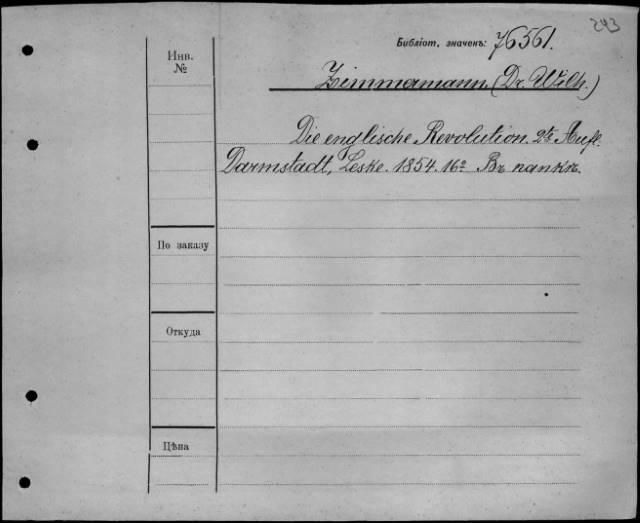 243
Библіот. значекъ: 76561.
Инв.
№
Zimmermann (Dr. Wilh.)
Die englische Revolution. 2te Aufl.
Darmstadt, Leske. 1854. 16º Въ папкѣ.
По заказу
Откуда
Цѣна